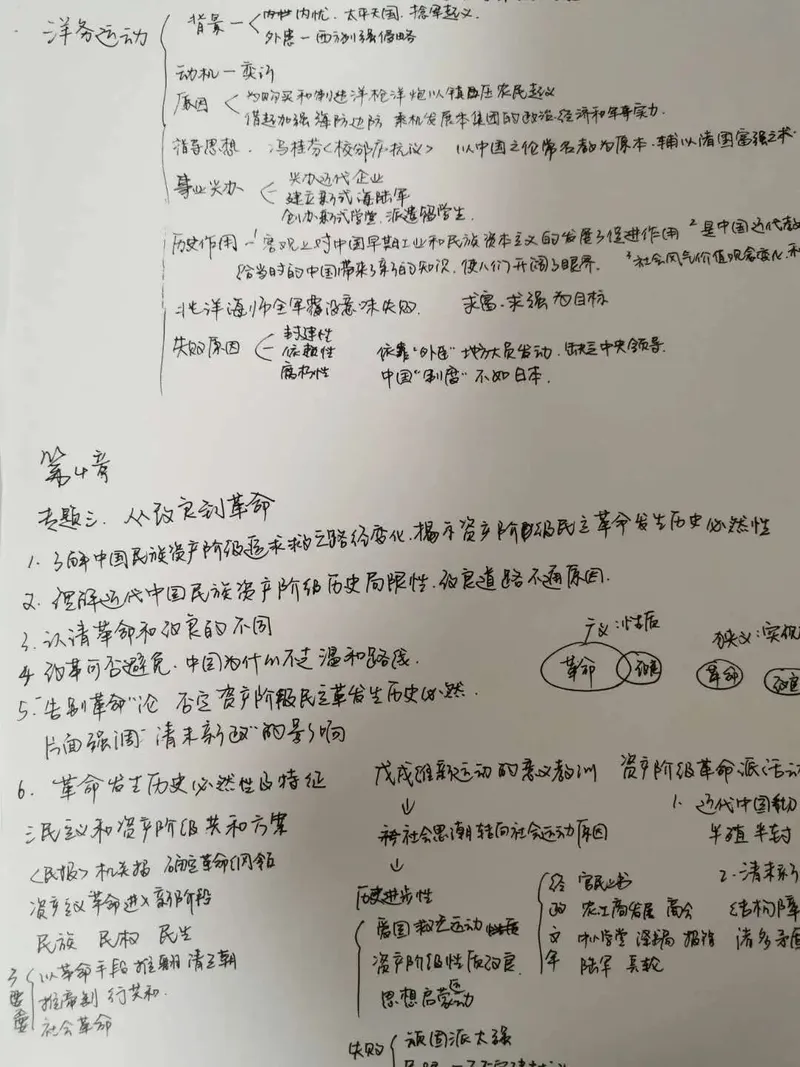 洋务运动
背景 — 内忧. 太平天国. 捻军起义.
外患 — 西方列强侵略
动机 —
原因 为购买和制造洋枪洋炮以镇压农民起义
借起加强海防边防 乘机发展本集团的政治.经济和军事实力.
指导思想. 冯桂芬<校邠庐抗议> 以中国之伦常名教为原本.辅以诸国富强之术
事业兴办 兴办近代企业
建立新式海陆军
创办新式学堂.派遣留学生.
历史作用 — 1 客观上对中国早期工业和民族资本主义的发展了促进作用 2 是中国近代教
给当时的中国带来了新的知识. 使人们开阔了眼界. 3 社会风气价值观念变化.
北洋海师全军覆没意味失败. 求富.求强为目标
失败原因 封建性
依赖性 依靠"外臣"地方大员发动. 缺乏中央领导.
腐朽性 中国"制度"不如日本.
第4章
专题三. 从改良到革命
1. 了解中国民族资产阶级追求救亡路径变化.揭示资产阶级民主革命发生历史必然性
2. 理解近代中国民族资产阶级历史局限性.改良道路不通原因.
3. 认清革命和改良的不同
广义:性质 狭义:实现
4 改革可否避免.中国为什么不走温和路线.
革命 改良 革命 改良
5."告别革命"论 否定资产阶级民主革发生历史必然.
片面强调"清末新政"的影响
6. 革命发生历史必然性及特征 戊戌维新运动的意义教训 资产阶级革命派活动
↓ 1. 近代中国
三民主义和资产阶级共和方案 社会思潮转向社会运动原因 半殖半封
<民报>机关报 确定革命纲领 ↓ 2. 清末新
资产主义革命进入新阶段 历史进步性 经 官民
爱国救亡运动 政 农工商发展 商会 结构障
民族 民权 民生 资产阶级性质改良 文 中小学堂 报馆 诸多矛盾
以革命手段推翻清王朝 思想启蒙运动 军 陆军
推帝制 行共和.
社会革命
失败 顽固派太强